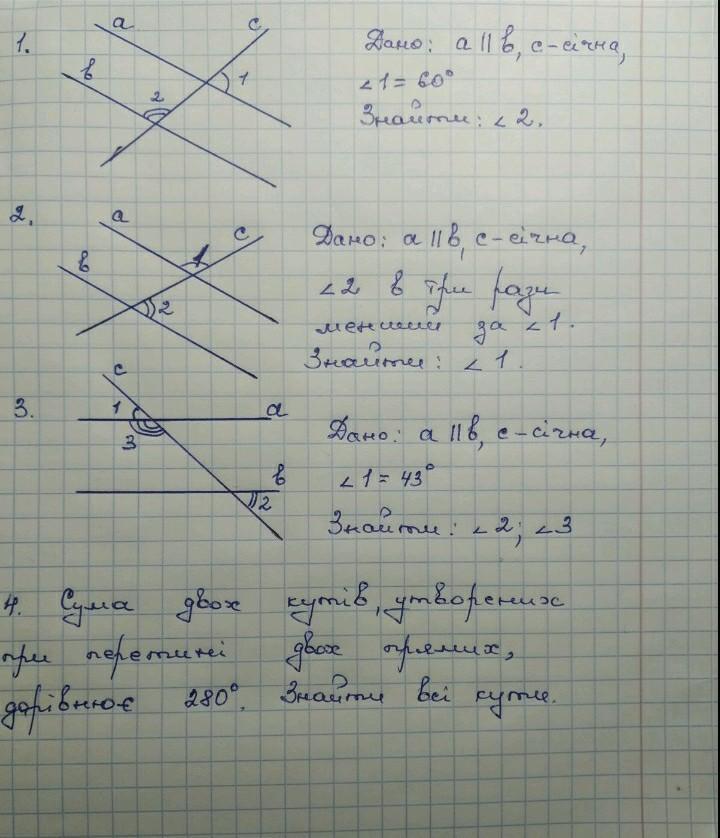 1.
a
c
b
1
2
Дано: a || b, c - січна,
∠1 = 60°
Знайти: ∠2.
2.
a
c
b
1
2
Дано: a || b, c - січна,
∠2 в три рази
менший за ∠1.
Знайти: ∠1.
3.
c
1
a
3
b
2
Дано: a || b, c - січна,
∠1 = 43°
Знайти: ∠2; ∠3
4. Сума двох кутів, утворених
при перетині двох прямих,
дорівнює 280°. Знайти всі кути.